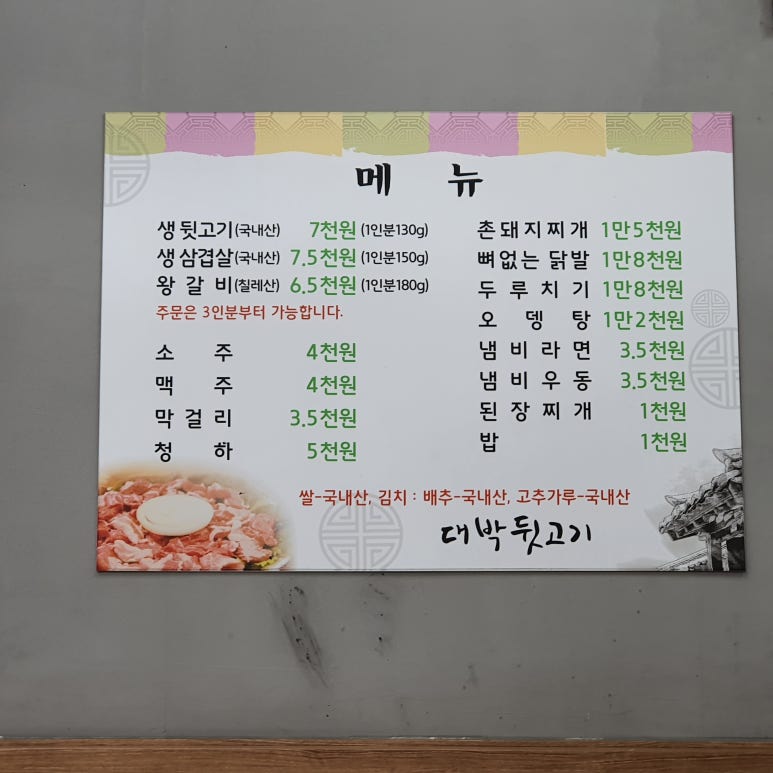 메 뉴
생뒷고기(국내산) 7천원 (1인분130g)
생삼겹살(국내산) 7.5천원 (1인분150g)
왕갈비(칠레산) 6.5천원 (1인분180g)
주문은 3인분부터 가능합니다.
소주 4천원
맥주 4천원
막걸리 3.5천원
청하 5천원
촌돼지찌개 1만5천원
뼈없는 닭발 1만8천원
두루치기 1만8천원
오뎅탕 1만2천원
냄비라면 3.5천원
냄비우동 3.5천원
된장찌개 1천원
밥 1천원
쌀-국내산, 김치 : 배추-국내산, 고추가루-국내산
대박뒷고기